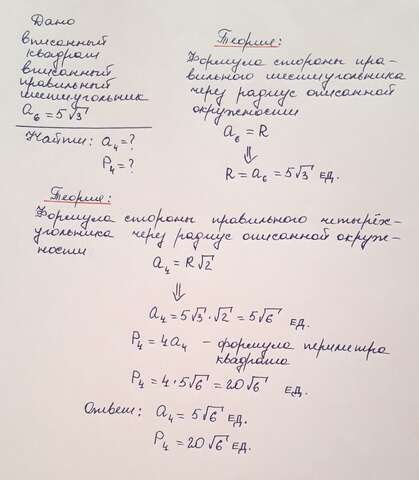 Дано
вписанный
квадрат
вписанный
правильный
шестиугольник
a₆ = 5√3
Найти: a₄ = ?
P₄ = ?
Теория:
Формула стороны пра-
вильного шестиугольника
через радиус описанной
окружности
a₆ = R
⇓
R = a₆ = 5√3 ед.
Теория:
Формула стороны правильного четырёх-
угольника через радиус описанной окруж-
ности
a₄ = R√2
⇓
a₄ = 5√3 · √2 = 5√6 ед.
P₄ = 4a₄ – формула периметра
квадрата
P₄ = 4 · 5√6 = 20√6 ед.
Ответ: a₄ = 5√6 ед.
P₄ = 20√6 ед.